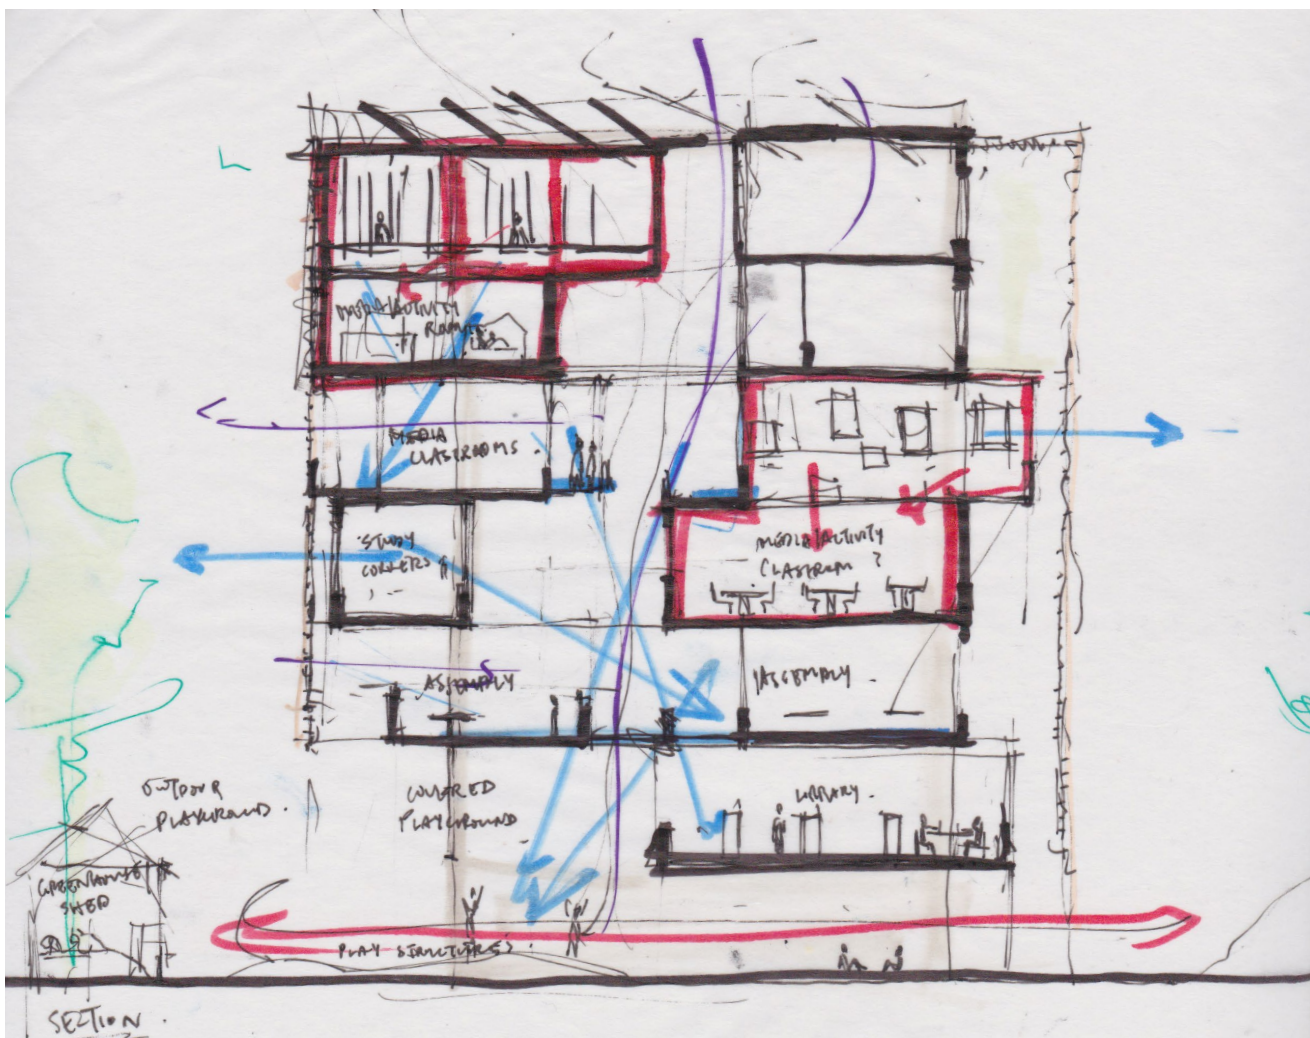 MEDIA/ACTIVITY
ROOMS
MEDIA
CLASSROOMS.
STUDY
CORNERS
MEDIA/ACTIVITY
CLASSROOM ?
ASSEMBLY
ASSEMBLY
OUTDOOR
PLAYGROUND.
COVERED
PLAYGROUND
LIBRARY.
GREENHOUSE
SHED
PLAY STRUCTURES?
SECTION.